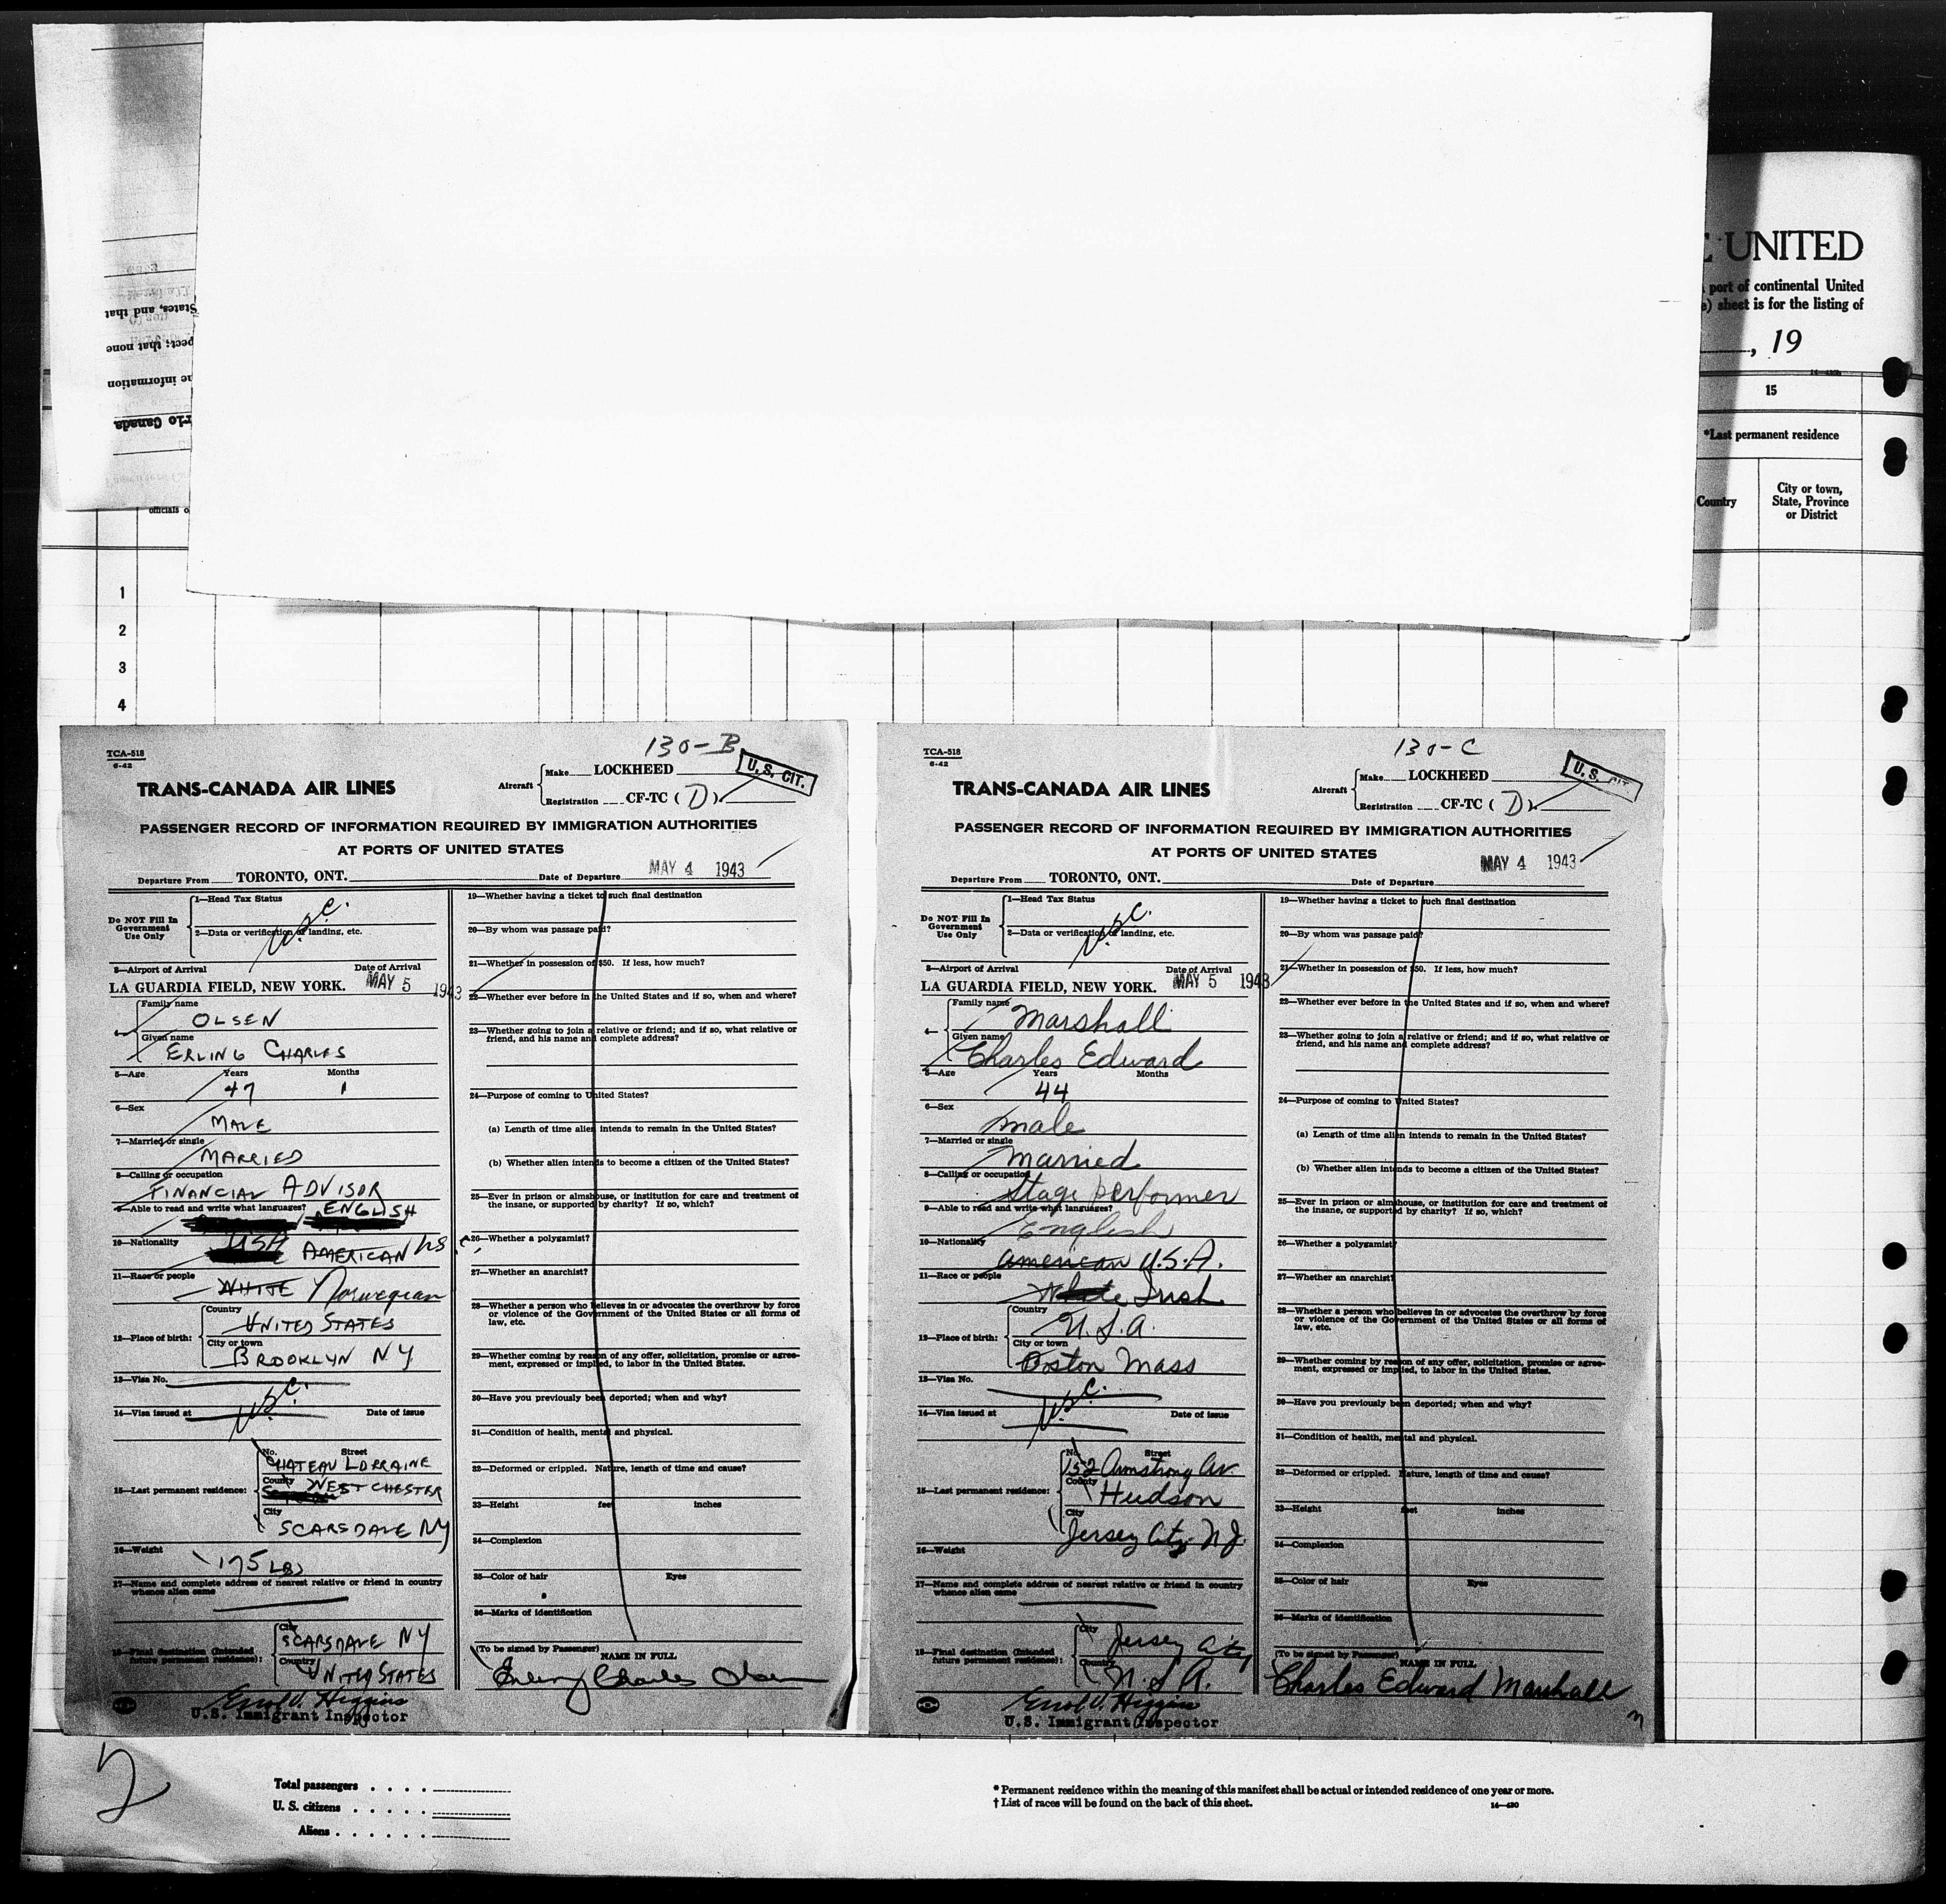 E UNITED
port of continental United
e) sheet is for the listing of
, 19
15
*Last permanent residence
Country
City or town,
State, Province
or District
States, and that
pect; that none
he information
rio Canada
officials o
1
2
3
4
TCA-518
6-42
130-B
TRANS-CANADA AIR LINES
Aircraft
Make LOCKHEED
Registration CF-TC ( D )
U. S. CIT.
PASSENGER RECORD OF INFORMATION REQUIRED BY IMMIGRATION AUTHORITIES
AT PORTS OF UNITED STATES
Departure From TORONTO, ONT. Date of Departure MAY 4 1943
Do NOT Fill In
Government
Use Only
1—Head Tax Status
U.S.C.
2—Data or verification of landing, etc.
3—Airport of Arrival Date of Arrival
LA GUARDIA FIELD, NEW YORK. MAY 5 1943
4—
Family name
OLSEN
Given name
ERLING CHARLES
5—Age Years Months
47 1
6—Sex
MALE
7—Married or single
MARRIED
8—Calling or occupation
FINANCIAL ADVISOR
9—Able to read and write what languages? ENGLISH
10—Nationality USA AMERICAN US
11—Race or people
WHITE Norwegian
12—Place of birth:
Country
UNITED STATES
City or town
BROOKLYN NY
13—Visa No.
U.S.C.
14—Visa issued at Date of issue
15—Last permanent residence:
No. Street
CHATEAU LORRAINE
County WESTCHESTER
City
SCARSDALE NY
16—Weight
175 LBS
17—Name and complete address of nearest relative or friend in country
whence alien came
18—Final destination (Intended
future permanent residence):
City
SCARSDALE NY
Country
UNITED STATES
Errol V. Higgins
U.S. Immigrant Inspector
19—Whether having a ticket to such final destination
20—By whom was passage paid?
21—Whether in possession of $50. If less, how much?
22—Whether ever before in the United States and if so, when and where?
23—Whether going to join a relative or friend; and if so, what relative or
friend, and his name and complete address?
24—Purpose of coming to United States?
(a) Length of time alien intends to remain in the United States?
(b) Whether alien intends to become a citizen of the United States?
25—Ever in prison or almshouse, or institution for care and treatment of
the insane, or supported by charity? If so, which?
26—Whether a polygamist?
27—Whether an anarchist?
28—Whether a person who believes in or advocates the overthrow by force
or violence of the Government of the United States or all forms of
law, etc.
29—Whether coming by reason of any offer, solicitation, promise or agree-
ment, expressed or implied, to labor in the United States.
30—Have you previously been deported; when and why?
31—Condition of health, mental and physical.
32—Deformed or crippled. Nature, length of time and cause?
33—Height feet inches
34—Complexion
35—Color of hair Eyes
36—Marks of identification
(To be signed by Passenger)
NAME IN FULL
Erling Charles Olsen
TCA-518
6-42
130-C
TRANS-CANADA AIR LINES
Aircraft
Make LOCKHEED
Registration CF-TC ( D )
U. S. CIT.
PASSENGER RECORD OF INFORMATION REQUIRED BY IMMIGRATION AUTHORITIES
AT PORTS OF UNITED STATES
Departure From TORONTO, ONT. Date of Departure MAY 4 1943
Do NOT Fill In
Government
Use Only
1—Head Tax Status
U.S.C.
2—Data or verification of landing, etc.
3—Airport of Arrival Date of Arrival
LA GUARDIA FIELD, NEW YORK. MAY 5 1943
4—
Family name
Marshall
Given name
Charles Edward
5—Age Years Months
44
6—Sex
male
7—Married or single
Married
8—Calling or occupation
Stage performer
9—Able to read and write what languages?
English
10—Nationality
american U.S.A.
11—Race or people
White Irish
12—Place of birth:
Country
U.S.A.
City or town
Boston Mass
13—Visa No.
U.S.C.
14—Visa issued at Date of issue
15—Last permanent residence:
No. Street
152 Armstrong Av.
County
Hudson
City
Jersey City N.J.
16—Weight
17—Name and complete address of nearest relative or friend in country
whence alien came
18—Final destination (Intended
future permanent residence):
City
Jersey City
Country
U.S.A.
Errol V. Higgins
U.S. Immigrant Inspector
19—Whether having a ticket to such final destination
20—By whom was passage paid?
21—Whether in possession of $50. If less, how much?
22—Whether ever before in the United States and if so, when and where?
23—Whether going to join a relative or friend; and if so, what relative or
friend, and his name and complete address?
24—Purpose of coming to United States?
(a) Length of time alien intends to remain in the United States?
(b) Whether alien intends to become a citizen of the United States?
25—Ever in prison or almshouse, or institution for care and treatment of
the insane, or supported by charity? If so, which?
26—Whether a polygamist?
27—Whether an anarchist?
28—Whether a person who believes in or advocates the overthrow by force
or violence of the Government of the United States or all forms of
law, etc.
29—Whether coming by reason of any offer, solicitation, promise or agree-
ment, expressed or implied, to labor in the United States.
30—Have you previously been deported; when and why?
31—Condition of health, mental and physical.
32—Deformed or crippled. Nature, length of time and cause?
33—Height feet inches
34—Complexion
35—Color of hair Eyes
36—Marks of identification
(To be signed by Passenger)
NAME IN FULL
Charles Edward Marshall
2
Total passengers
U. S. citizens
Aliens
* Permanent residence within the meaning of this manifest shall be actual or intended residence of one year or more.
† List of races will be found on the back of this sheet.
14—430